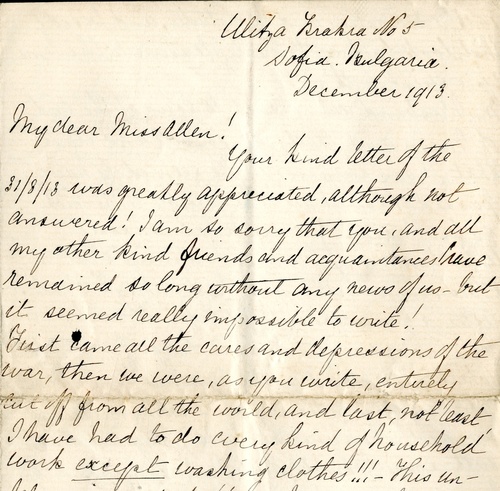 Ulitza Krakra No 5
Sofia. Bulgaria.
December 1913.
My dear Miss Allen!
Your kind letter of the
31/8/13 was greatly appreciated, although not
answered! I am so sorry that you, and all
my other kind friends and acquaintances have
remained so long without any news of us - but
it seemed really impossible to write!
First came all the cares and depressions of the
war, then we were, as you write, entirely
cut off from all the world, and last, not least
I have had to do every kind of household
work except washing clothes!!! - This un-